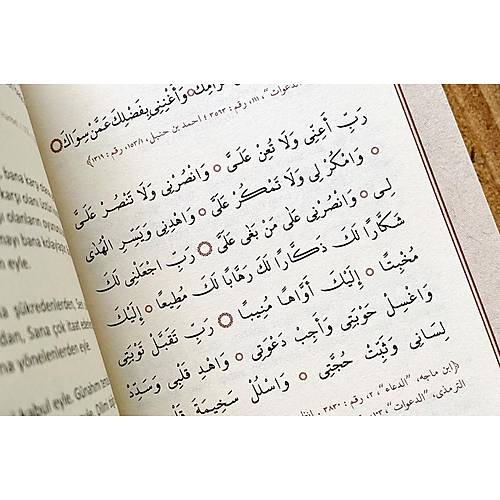 وَأَغْنِنِي بِفَضْلِكَ عَمَّنْ سِوَاكَ
الدعوات"، ١١١، رقم: ٣٥٦٣؛ احمد بن حنبل، ١٥٣/١، رقم: ١٣١٩﴾
رَبِّ أَعِنِّي وَلَا تُعِنْ عَلَىَّ وَانْصُرْنِي وَلَا تَنْصُرْ عَلَىَّ
وَامْكُرْ لِي وَلَا تَمْكُرْ عَلَىَّ وَاهْدِنِي وَيَسِّرِ الْهُدٰى
لِي وَانْصُرْنِي عَلٰى مَنْ بَغٰى عَلَىَّ رَبِّ اجْعَلْنِي لَكَ
شَكَّارًا لَكَ ذَكَّارًا لَكَ رَهَّابًا لَكَ مُطِيعًا إِلَيْكَ
مُخْبِتًا إِلَيْكَ أَوَّاهًا مُنِيبًا رَبِّ تَقَبَّلْ تَوْبَتِي
وَاغْسِلْ حَوْبَتِي وَأَجِبْ دَعْوَتِي وَاهْدِ قَلْبِي وَسَدِّدْ
لِسَانِي وَثَبِّتْ حُجَّتِي وَاسْلُلْ سَخِيمَةَ
﴿ابن ماجه، "الدعاء"، ٢، رقم: ٣٨٣٠
الترمذى، "الدعوات"، ١٠٣
bana karşı
karşı
olanların
mayı bana kolaylaştır
eyle.
şükredenlerden, Sen
dan, Sana çok itaat eden
na yönelenlerden eyle.
kabul eyle. Günahım